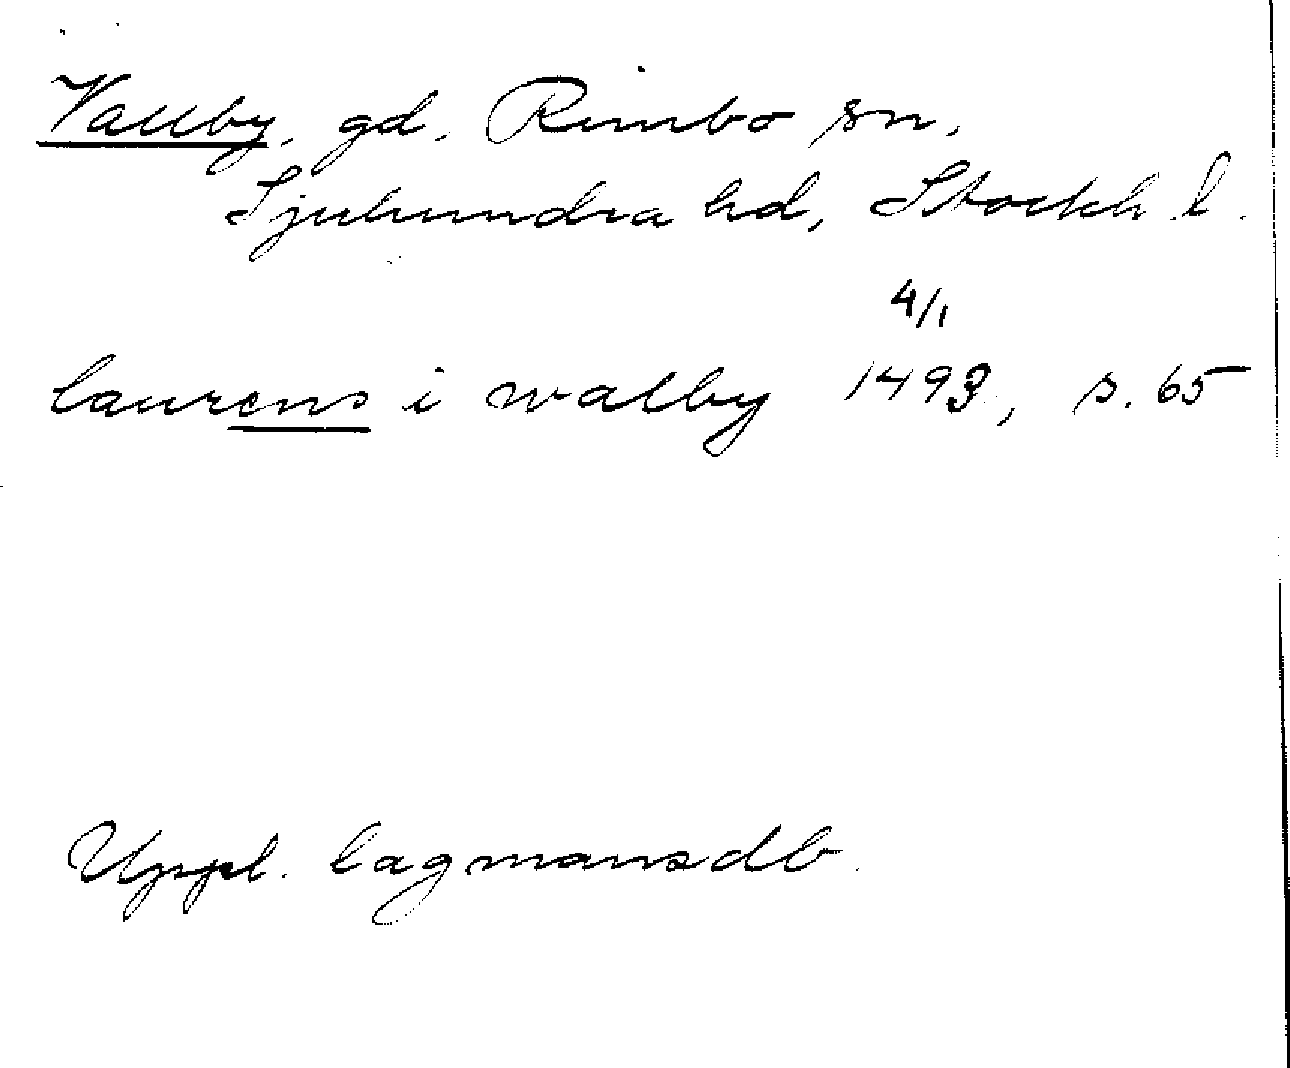 Vallby, gd. Rimbo sn,
Sjuhundra hd, Stockh l.
4/1
laurens i walby 1493, s. 65
Uppl. lagmansdb.